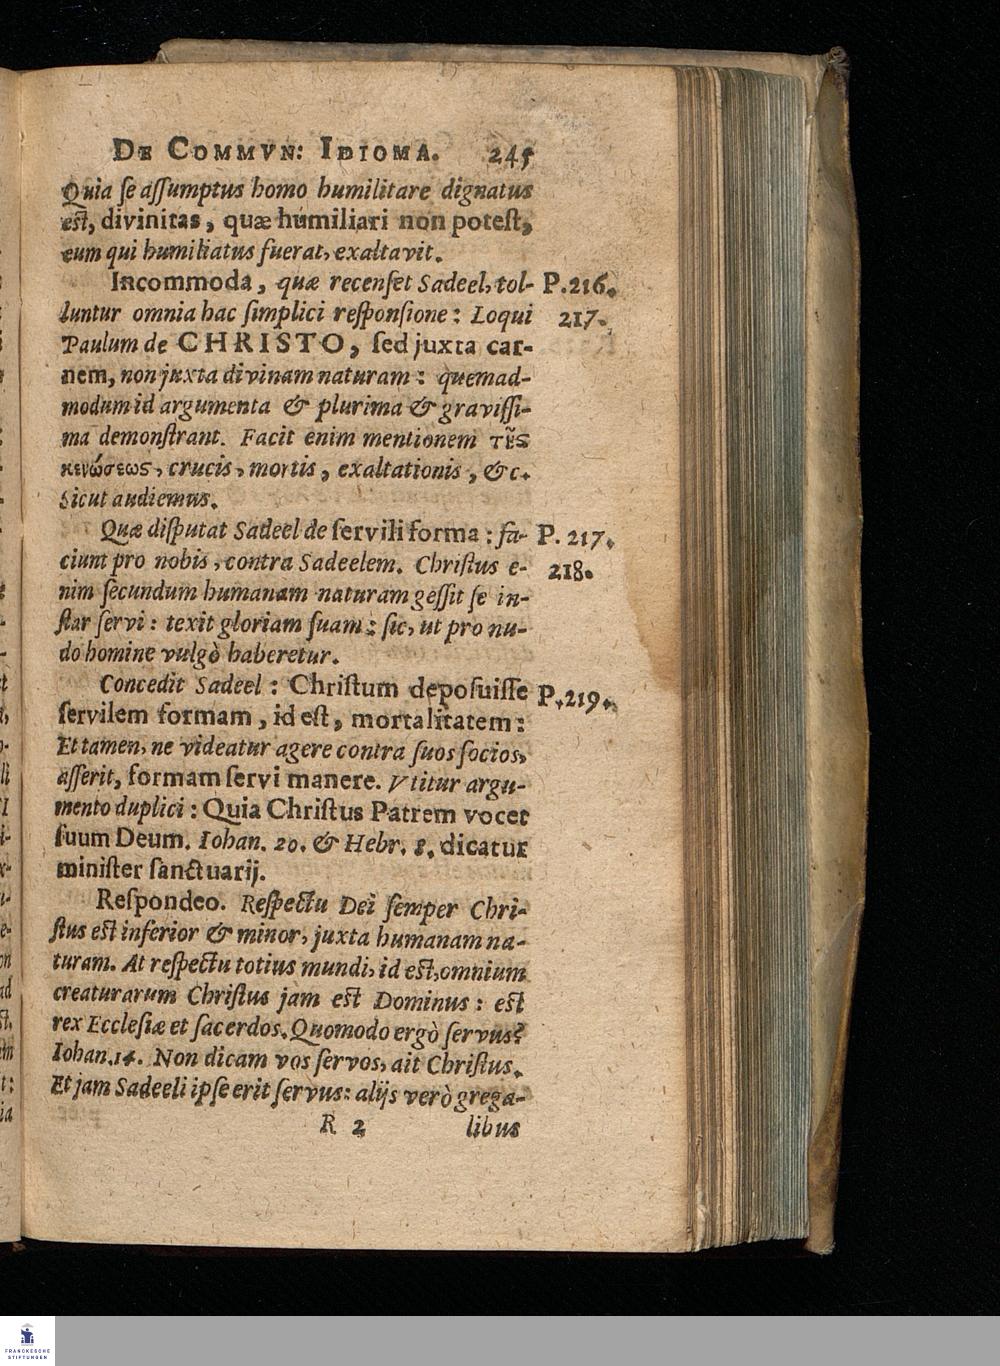 DE COMMVN: IDIOMA. 245
Quia se aſſumptus homo humilitare dignatus
eſt, divinitas, quæ humiliari non poteſt,
eum qui humiliatus fuerat, exaltavit.
Incommoda, quæ recenſet Sadeel, tol- P.216.
luntur omnia hac ſimplici reſponſione: Loqui 217.
Paulum de CHRISTO, ſed juxta car-
nem, non juxta divinam naturam: quemad-
modum id argumenta & plurima & graviſſi-
ma demonſtrant. Facit enim mentionem τῆς
κενώσεως, crucis, mortis, exaltationis, &c.
Sicut audiemus.
Quæ diſputat Sadeel de ſervili forma: fa- P. 217.
ciunt pro nobis, contra Sadeelem. Chriſtus e- 218.
nim ſecundum humanam naturam geſſit ſe in-
ſtar ſervi: texit gloriam ſuam: ſic, ut pro nu-
do homine vulgò haberetur.
Concedit Sadeel: Chriſtum depoſuiſſe P.219.
ſervilem formam, id eſt, mortalitatem:
Et tamen, ne videatur agere contra ſuos ſocios,
aſſerit, formam ſervi manere. Vtitur argu-
mento duplici: Quia Chriſtus Patrem vocet
ſuum Deum. Iohan. 20. & Hebr. 8. dicatur
miniſter ſanctuarij.
Reſpondeo. Reſpectu Dei ſemper Chri-
ſtus eſt inferior & minor, juxta humanam na-
turam. At reſpectu totius mundi, id eſt, omnium
creaturarum Chriſtus jam eſt Dominus: eſt
rex Eccleſiæ et ſacerdos. Quomodo ergò ſervus?
Iohan.14. Non dicam vos ſervos, ait Chriſtus.
Et jam Sadeeli ipſe erit ſervus: alijs verò grega-
R 2 libus
FRANCKESCHE
STIFTUNGEN